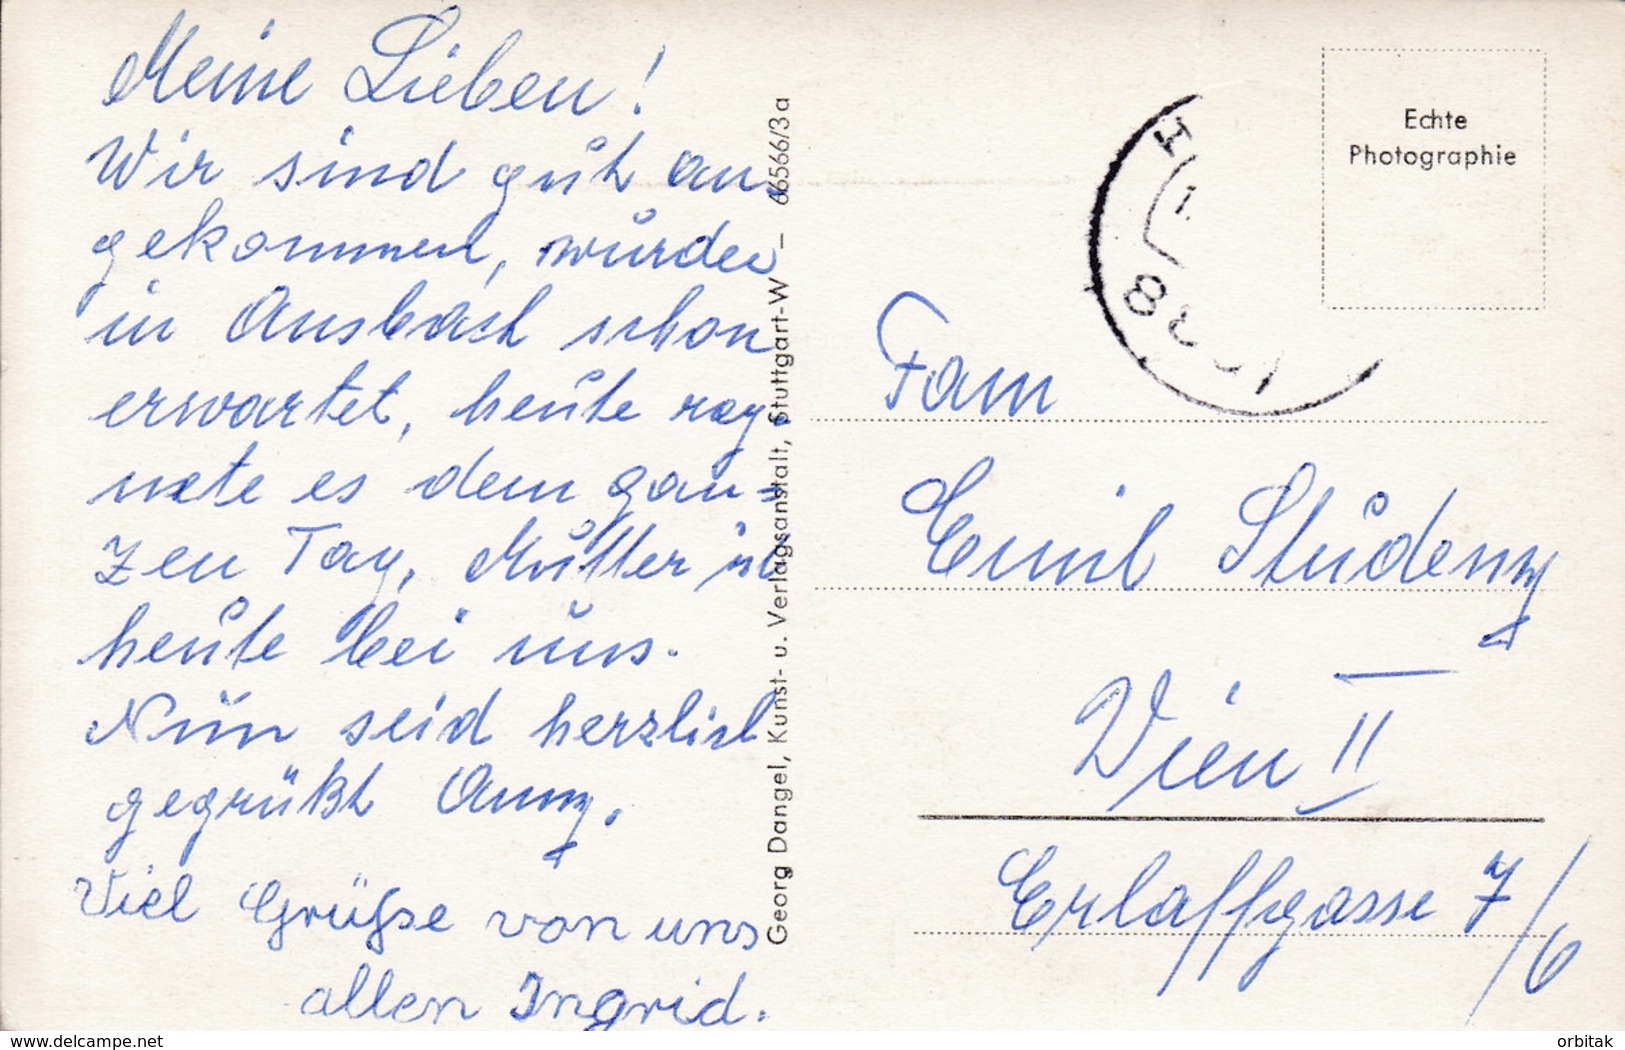 Meine Lieben!
Wir sind gut an-
gekommen, wurden
in Ansbach schon
erwartet, heute reg-
nete es den gan=
zen Tag, Mutter ist
heute bei uns.
Nun seid herzlich
gegrüßt Anny.
Viel Grüße von uns
allen Ingrid.
Georg Dangel, Kunst- u. Verlagsanstalt, Stuttgart-W – 66566/3a
Echte
Photographie
Fam
Emil Studeny
Wien II
Erlaffgasse 7/6
www.delcampe.net
orbitak